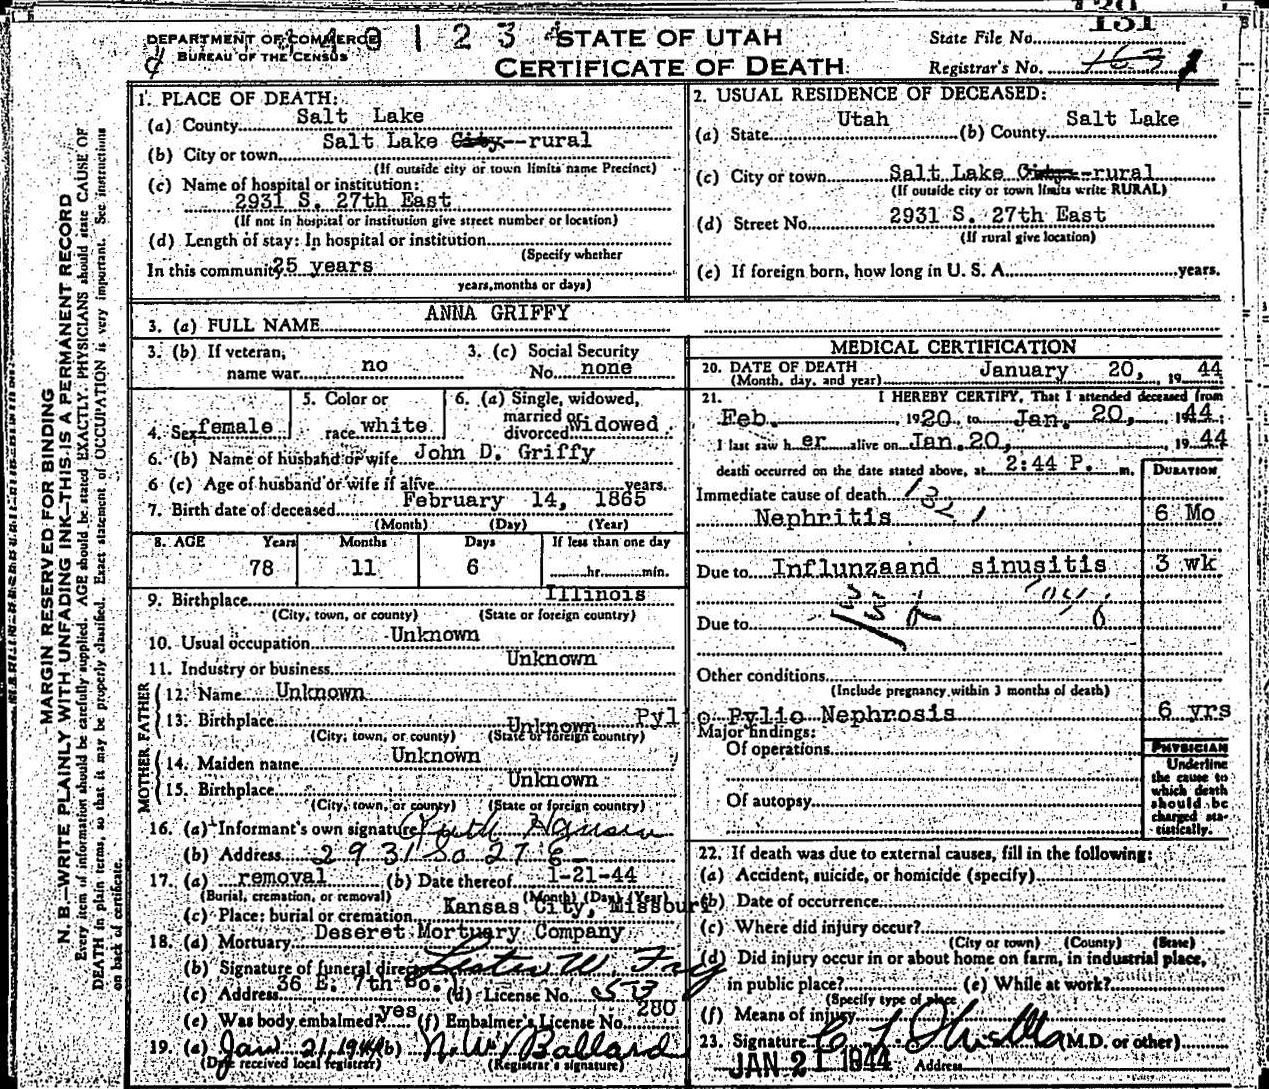 DEPARTMENT OF COMMERCE
BUREAU OF THE CENSUS
STATE OF UTAH
CERTIFICATE OF DEATH
State File No. 151
Registrar's No. 163
MARGIN RESERVED FOR BINDING
N. B.—WRITE PLAINLY WITH UNFADING INK—THIS IS A PERMANENT RECORD
Every item of information should be carefully supplied. AGE should be stated EXACTLY. PHYSICIANS should state CAUSE OF
DEATH in plain terms, so that it may be properly classified. Exact statement of OCCUPATION is very important. See instructions
on back of certificate.
1. PLACE OF DEATH:
(a) County Salt Lake
(b) City or town Salt Lake City--rural
(If outside city or town limits name Precinct)
(c) Name of hospital or institution:
2931 S. 27th East
(If not in hospital or institution give street number or location)
(d) Length of stay: In hospital or institution
(Specify whether
In this community 25 years
years, months or days)
2. USUAL RESIDENCE OF DECEASED:
(a) State Utah (b) County Salt Lake
(c) City or town Salt Lake City--rural
(If outside city or town limits write RURAL)
(d) Street No. 2931 S. 27th East
(If rural give location)
(e) If foreign born, how long in U. S. A. years.
3. (a) FULL NAME ANNA GRIFFY
3. (b) If veteran, name war no
3. (c) Social Security No. none
4. Sex female
5. Color or race white
6. (a) Single, widowed, married or divorced Widowed
6. (b) Name of husband or wife John D. Griffy
6 (c) Age of husband or wife if alive years.
7. Birth date of deceased February 14, 1865
(Month) (Day) (Year)
8. AGE Years Months Days If less than one day
78 11 6 hr. min.
9. Birthplace Illinois
(City, town, or county) (State or foreign country)
10. Usual occupation Unknown
11. Industry or business Unknown
FATHER
12. Name Unknown
13. Birthplace Unknown
(City, town, or county) (State or foreign country)
MOTHER
14. Maiden name Unknown
15. Birthplace Unknown
(City, town, or county) (State or foreign country)
16. (a) Informant's own signature
(b) Address 2931 So 27 E
17. (a) removal (b) Date thereof 1-21-44
(Burial, cremation, or removal) (Month) (Day) (Year)
(c) Place: burial or cremation Kansas City, Missouri
18. (a) Mortuary Deseret Mortuary Company
(b) Signature of funeral director Lester W. Fry
(c) Address 36 E. 7th So. (d) License No. 53
(e) Was body embalmed? yes (f) Embalmer's License No. 280
19. (a) Jan 21, 1944 (b) N. W. Ballard
(Date received local registrar) (Registrar's signature)
MEDICAL CERTIFICATION
20. DATE OF DEATH January 20, 19 44
(Month, day, and year)
21. I HEREBY CERTIFY, That I attended deceased from
Feb. 1920, to Jan. 20, 1944;
I last saw her alive on Jan. 20, 19 44
death occurred on the date stated above, at 2:44 P. m.
DURATION
Immediate cause of death
Nephritis 6 Mo
Due to Influnzaand sinusitis 3 wk
Due to
Other conditions
(Include pregnancy within 3 months of death)
Pylio Pylio Nephrosis 6 yrs
Major findings:
Of operations
Of autopsy
PHYSICIAN
Underline
the cause to
which death
should be
charged sta-
tistically.
22. If death was due to external causes, fill in the following:
(a) Accident, suicide, or homicide (specify)
(b) Date of occurrence
(c) Where did injury occur?
(City or town) (County) (State)
(d) Did injury occur in or about home on farm, in industrial place,
in public place? (e) While at work?
(Specify type of place
(f) Means of injury
23. Signature (M.D. or other)
JAN 21 1944 Address